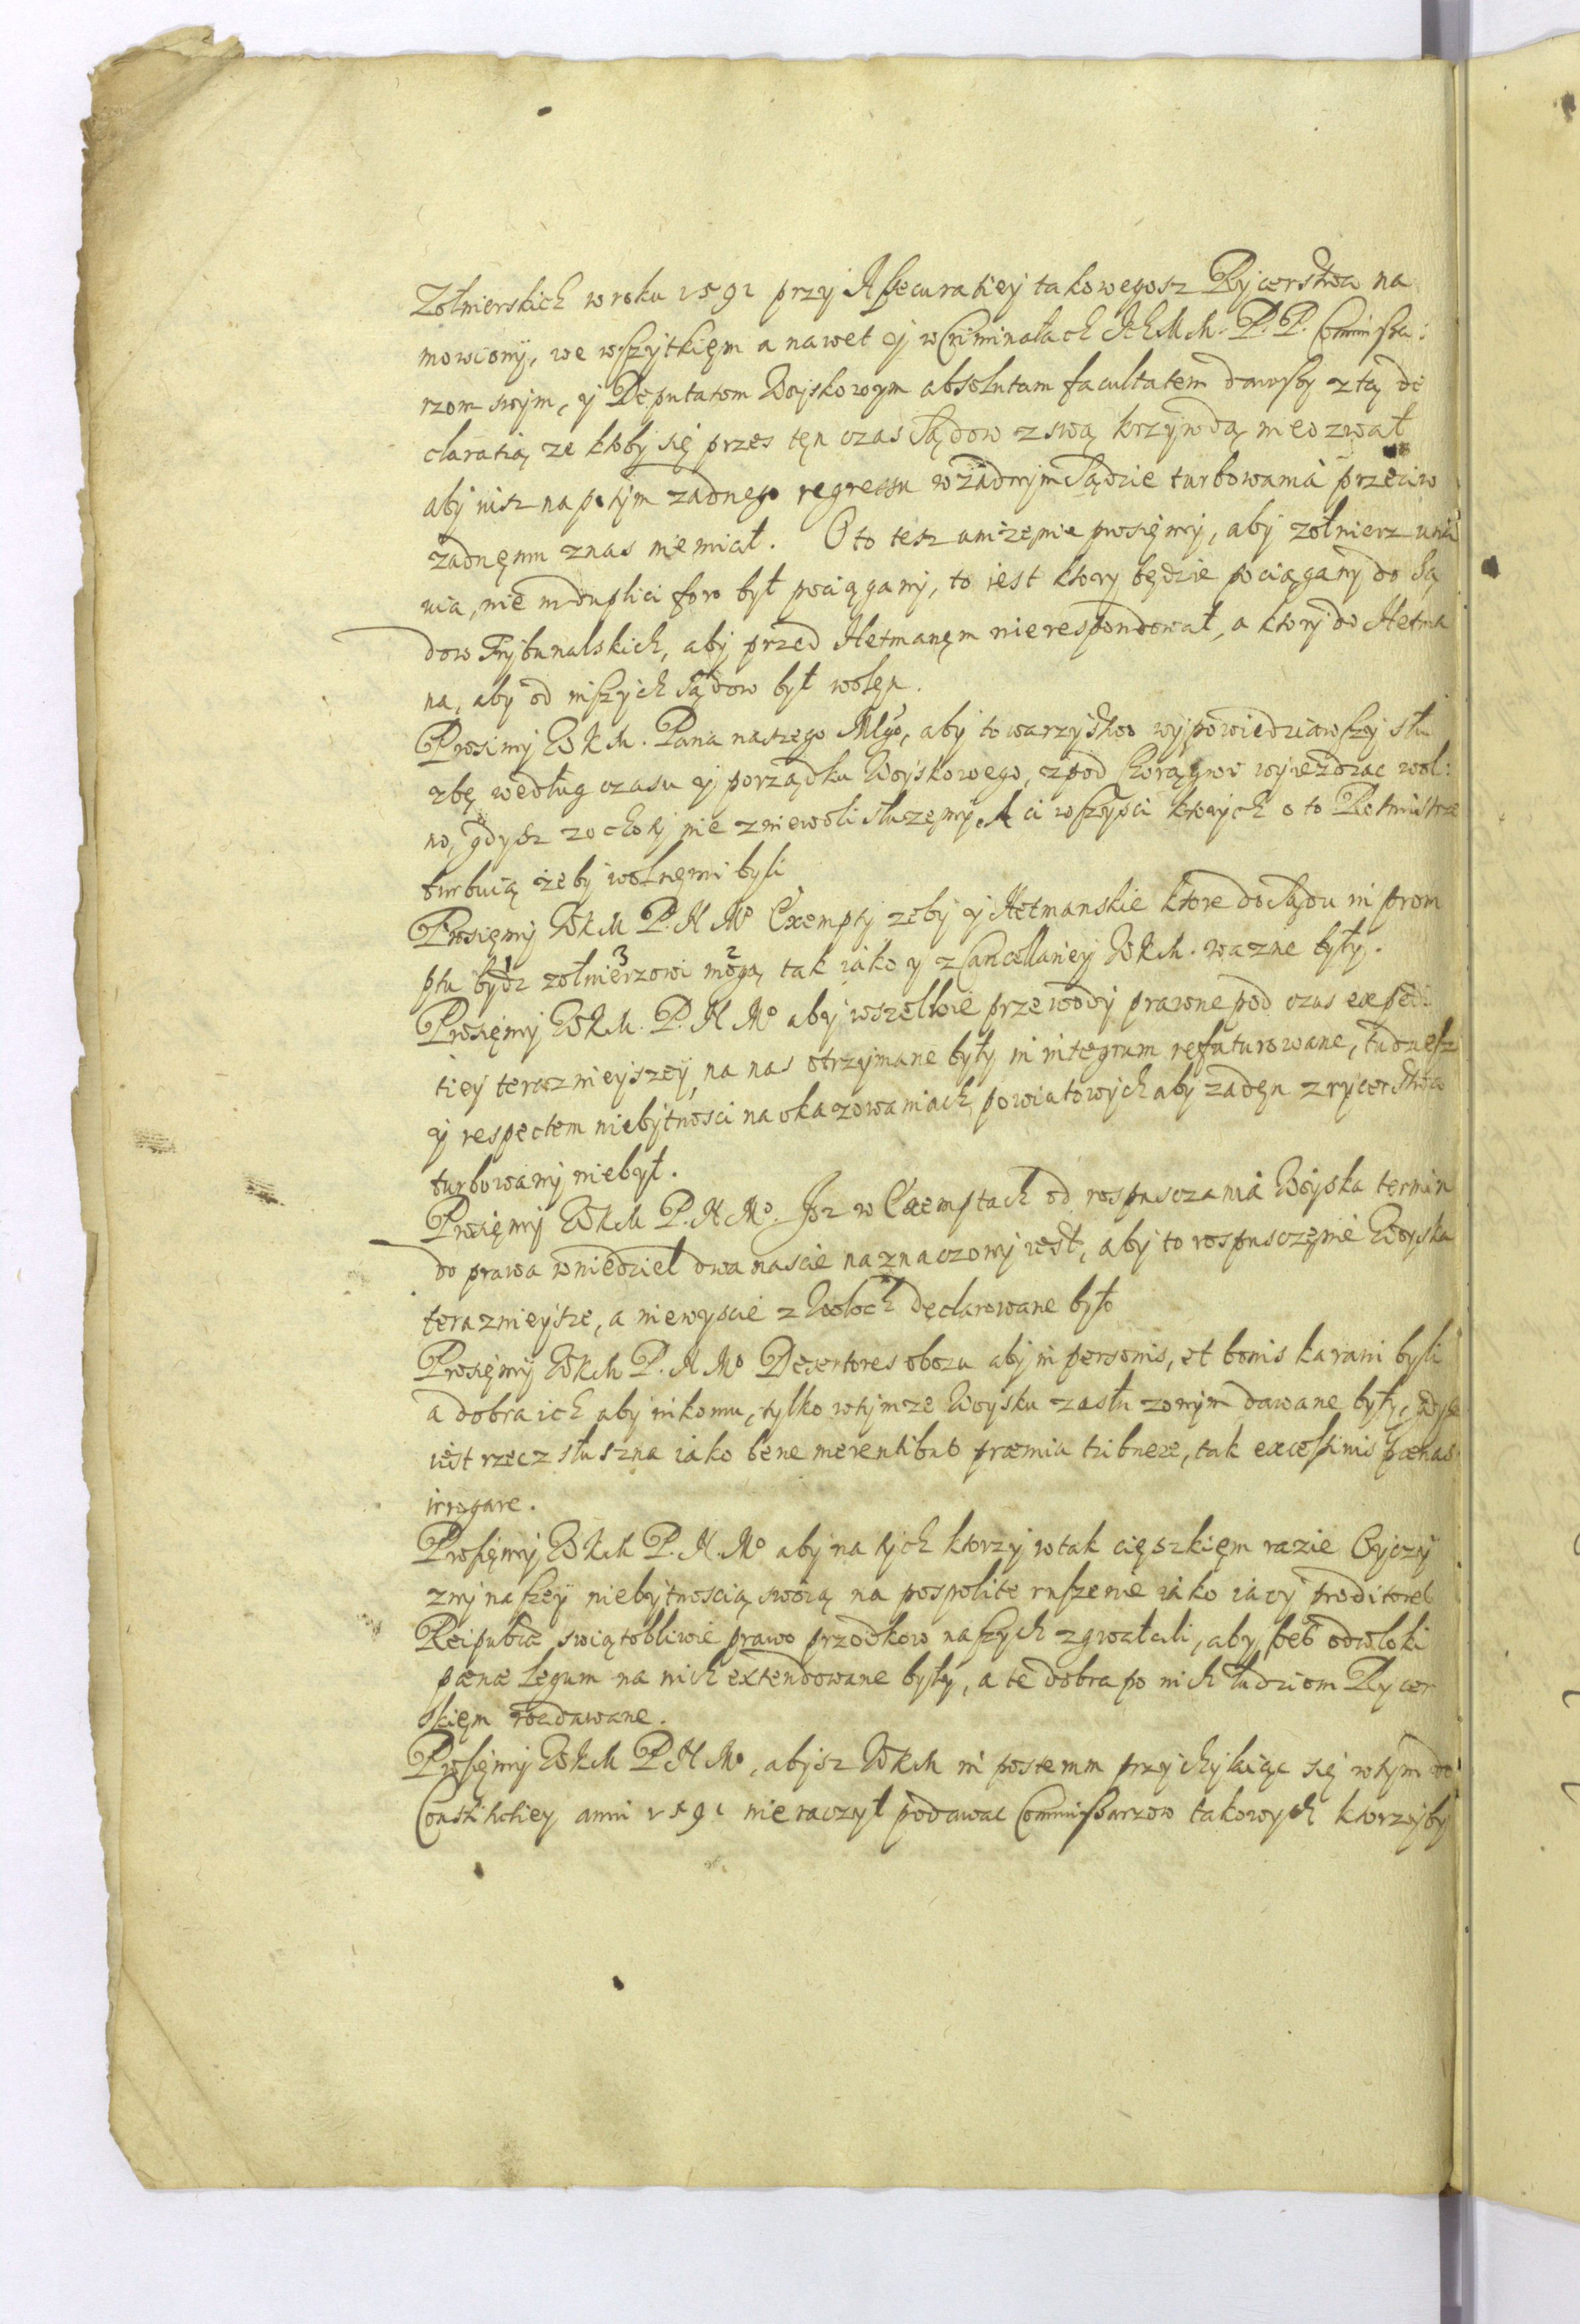 Zołnierskich w roku 1591 przy Assecuratiey takowegosz Rycerstwa na
mowiony, we wszytkięm a nawet y w Criminałach IchMM. P. P. Commissa:
rzom swym, y Deputatom Woyskowym absolutam facultatem dawszy z tą de
claratią ze ktoby się przes tęn czas Sądow z swą krzywdą nieozwał
aby iusz napotym zadnego regressu w zadnym Sądzie turbowania przeciw
zadnęmu znas niemiał. O to tesz unizenie prosięmy, aby zołnierz
nie in duplici foro był pociągany, to iest ktory będzie pociągany do Są
dow Trybunalskich, aby przed Hetmanęm nierespondował, a ktory do Hetma
na, aby od inszych Sądow był wolęn.
Prosimy WKM. Pana naszego Młgo, aby towarzystwo wypowiedziawszy słu
zbę według czasu y porządku Woyskowego, zpod Chorągwi wyiezdzac wol:
no, gdysz zochoty nie zniewoli słuzęmy. A ci wszyscy ktorych o to Rotmistrze
turbuią zeby wolnęmi byli
Prosięmy WKM P. N Mo Exempty zeby y Hetmanskie ktore do Sądu in prom
ptu bydz 1 zołnierzowi 3 mogą 2 tak iako y z Cancellariey WKM. wazne były.
Prosięmy WKM. P. N Mo aby wszelkie przewody prawne pod czas expedi
tiey teraznieyszey, na nas otrzymane były in integrum refuturowane, tudziesz
y respectem niebytnosci na okazowaniach powiatowych aby zadęn z rycerstwa
turbowany niebył.
Prosięmy WKM P. N Mo. Isz w Exemptach od rospusczania Woyska termin
do prawa w niedziel dwanascie naznaczony iest, aby to rospusczęnie Woyska
teraznieysze, a niewyscie z Wołoch declarowane było
Prosięmy WKM P. N Mo Desertores obozu aby in personis, et bonis karani byli
a dobra ich aby nikomu, tylko wtymze Woysku zasłuzonym dawane były, gdysz
iest rzecz słuszna iako bene merentibus præmia tribuere, tak excessiuis pænas
irrogare.
Prosięmy WKM P. N. Mo aby na tych ktorzy w tak cięszkięm razie Oyczy
zny naszey niebytnoscią swoią na pospolite ruszenie iako iawi proditores
Reipublicæ swiątobliwie prawo przodkow naszych zgwałcili, aby bes odwłoki
pænæ Legum na nich extendowane były, a te dobra po nich ludziom Rycer
skięm rozdawane.
Prosięmy WKM P N Mo, abysz WKM in posterum przychylaiąc się w tym do
Constitutiey anni 1591 nieraczył podawac Commissarzow takowych ktorzyby